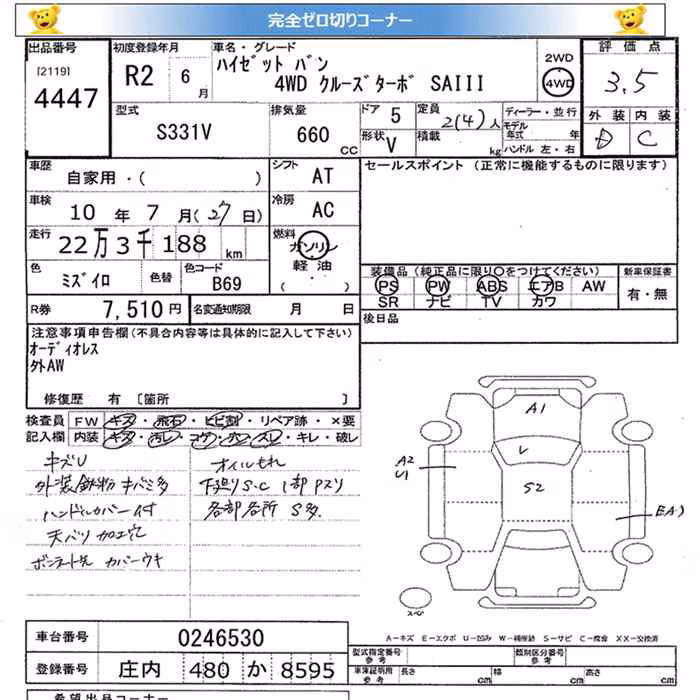 完全ゼロ切りコーナー
出品番号
[2119]
4447
初度登録年月
R2 6月
車名・グレード
ハイゼット バン
4WD クルーズターボ SAIII
2WD
4WD
評価点
3.5
外装 内装
D C
型式
S331V
排気量
660 CC
ドア 5
形状 V
定員 2(4)人
積載 kg
ディーラー・並行
モデル年式 年
ハンドル 左・右
車歴
自家用・( )
シフト AT
セールスポイント (正常に機能するものに限ります)
車検
10年 7月(27日)
冷房 AC
走行
22万3千188 km
燃料
ガソリン
軽油
( ・ )
色 ミズイロ
色替
色コード B69
装備品 (純正品に限り○をつけてください)
PS PW ABS エアB AW
SR ナビ TV カワ
新車保証書
有・無
R券 7,510円
名変通知期限 月 日
後日品
注意事項申告欄(不具合内容等は具体的に記入して下さい)
オーディオレス
外AW
修復歴 有 [箇所 ]
検査員 FW キズ・飛石・ヒビ割・リペア跡・×要
記入欄 内装 キズ・汚レ・コゲ・穴・スレ・キレ・破レ
キズU
外装鉄粉 キバミ多
ハンドルカバー付
天バリ 加工穴
ボンネット先 カバーウキ
オイルもれ
下廻りS.C 1部Pスリ
各部各所 S多.
A1
S2
A2
U1
EA)
スペア
A-キズ E-エクボ U-凹み W-補修跡 S-サビ C-腐食 XX-交換済
車台番号 0246530
登録番号 庄内 480 か 8595
型式指定番号
参考
類別区分番号
参考
車庫証明用
参考
長さ cm
幅 cm
高さ cm
希望出品コーナー